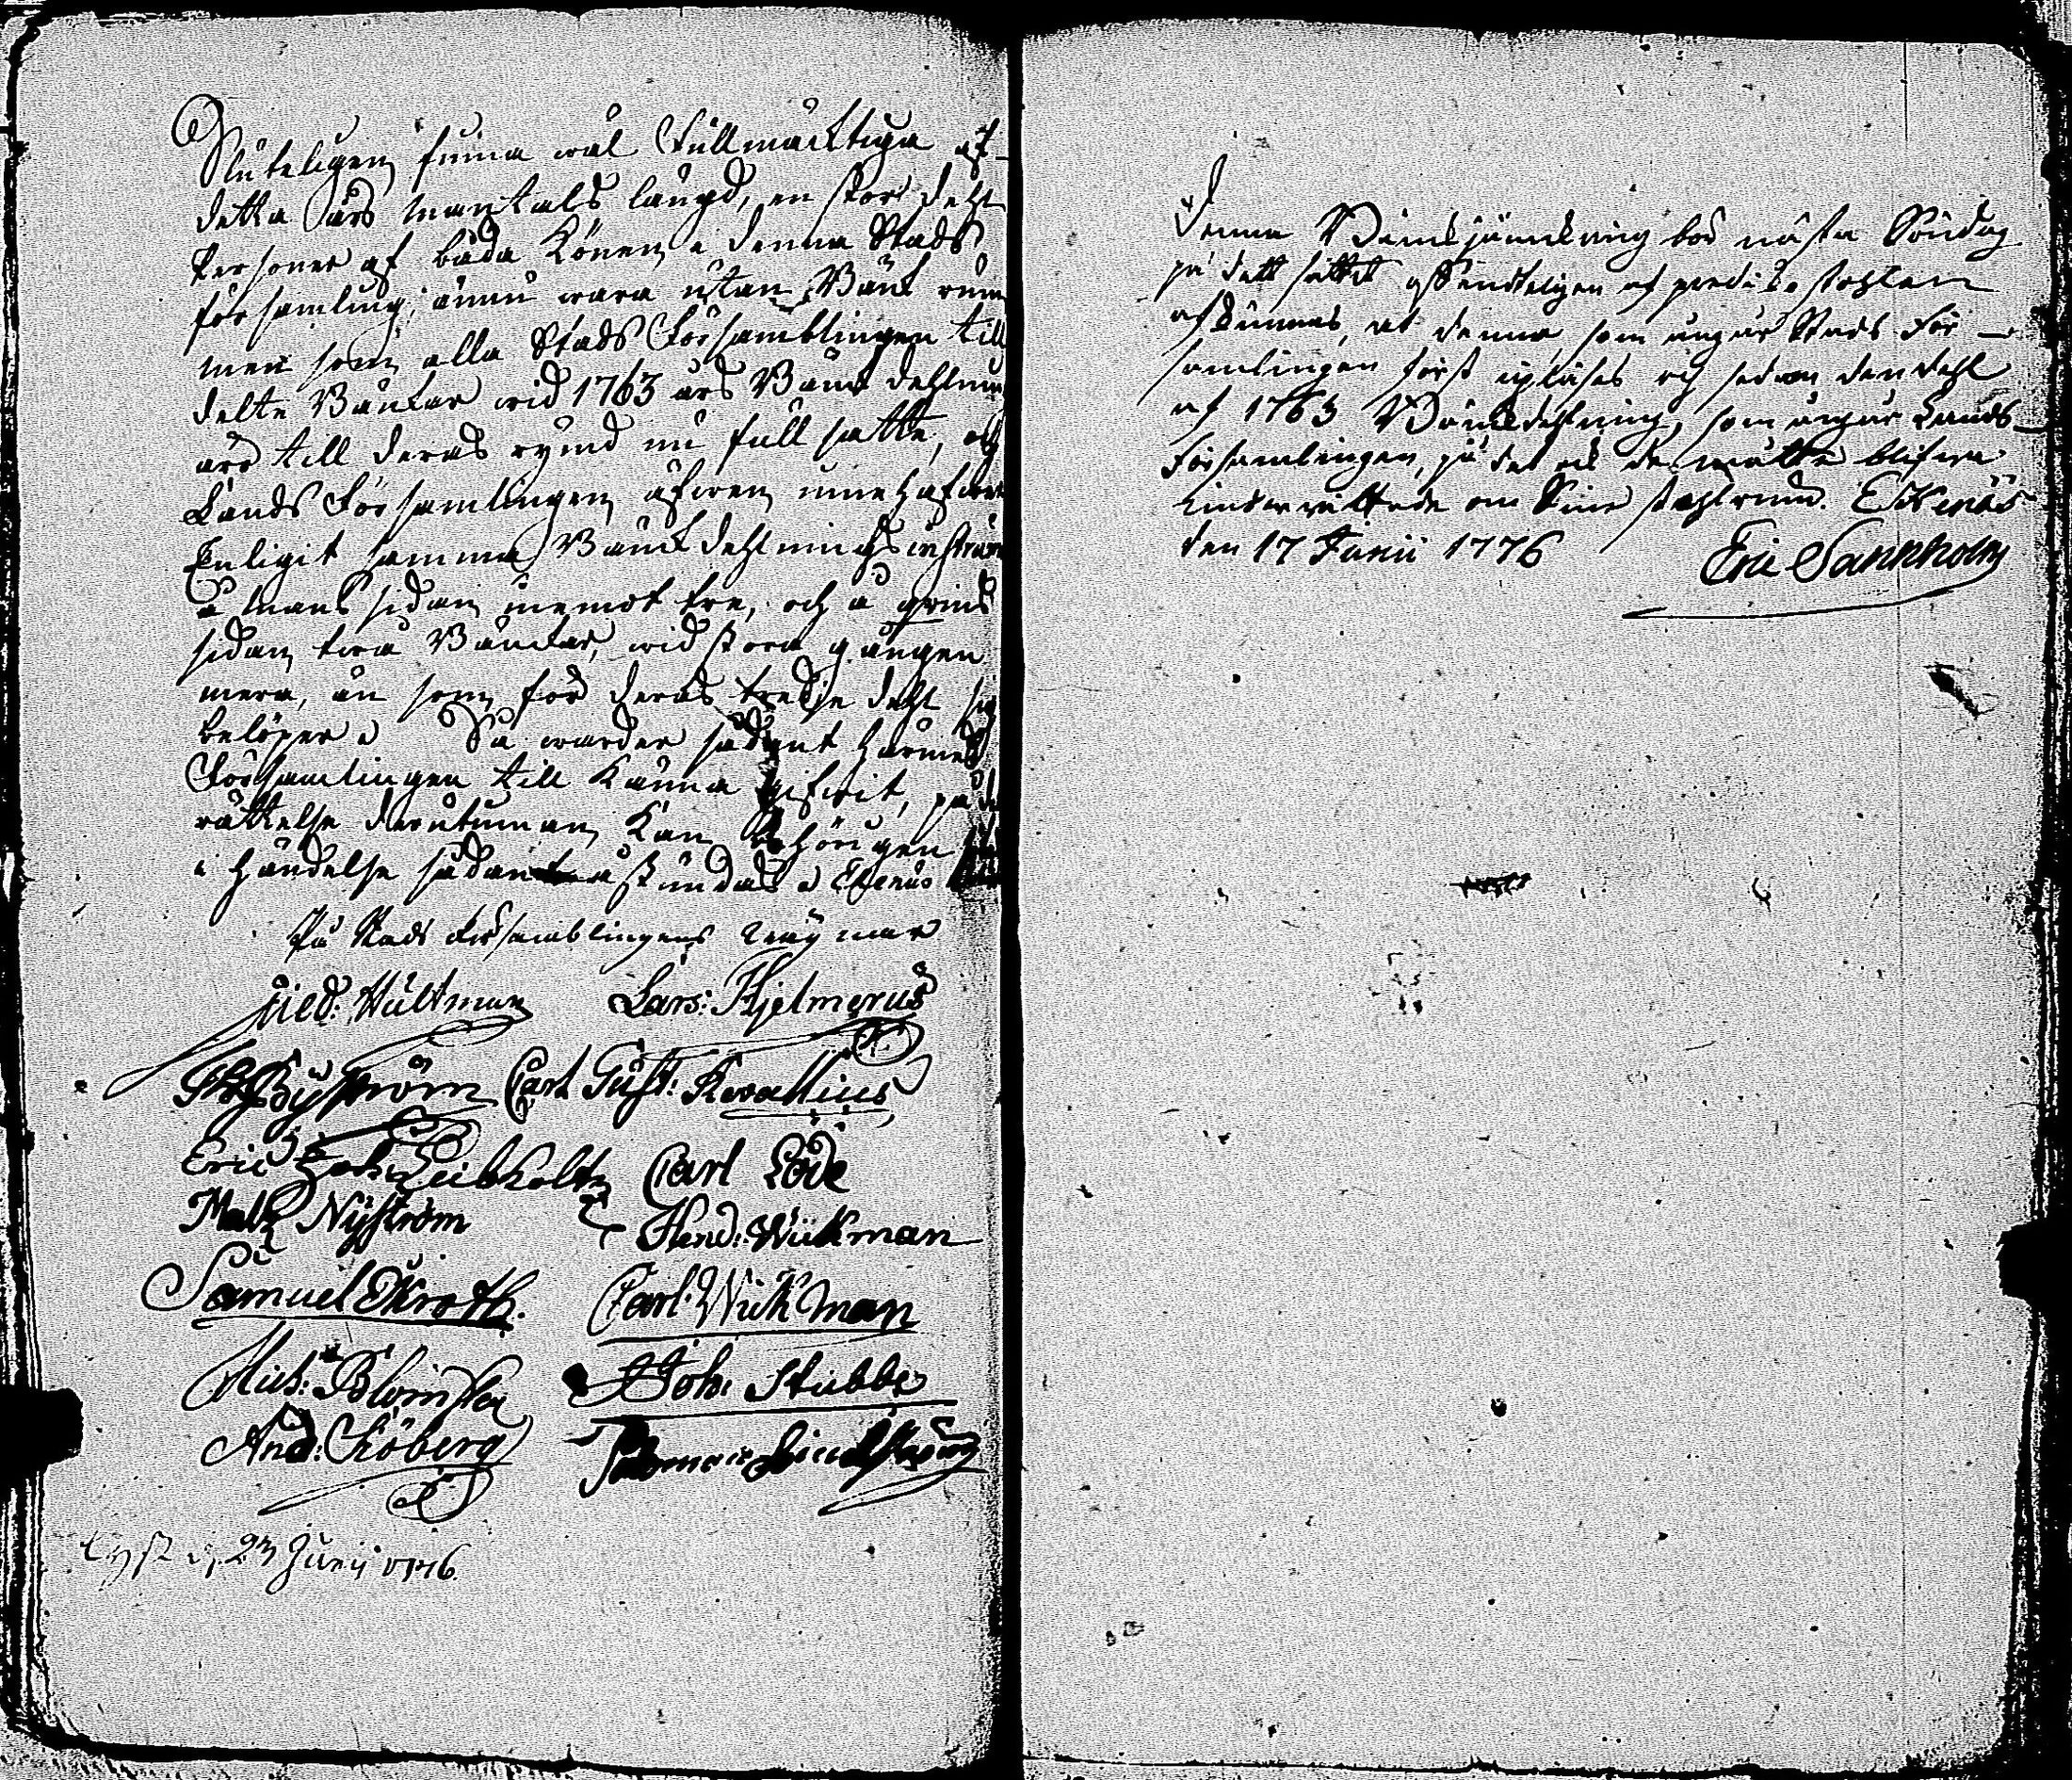 Sluteligen finna wäl Fullmäcktige af
detta åhrs Mantals längd, en stor dehl
Personer af båda Könen i denna Stads
församling, ännu wara utan Bänk rum
men som alla Stads Församblingen till
delte Bänkar wid 1763 års Bänk dehlning
äro till deras rymd nu full satte, och
Lands Församlingen äfwen innehafwer
Enligit samma Bänk dehlnings
å Mans sidan inemot tre, och å qwins
sidan twå Bänkar, wid stora gången
mera, än som för deras tredje dehl sig
belöper. Så warder sådant härmed
Församlingen till känna gifwit, på det
rättelse derutinnan kan behörigen
i händelse sådant åstundas. Ekenäs
På Stads Församblingens wägnar
Hultman Lars: Hjelmerus
Byström Carl Gust: Kevallius
Eric Leibholtz Carl Löde
Mats Nyström Hend: Wickman
Samuel Ekroth. Carl Wickman
Mich: Blomster Joh: Stubbe
And: Chöberg Lindström
Lyst d. 23 Junii 1776.
Denna Bänkjämckning bör nästa Söndag
på dett sättet offenteligen af predikostohlen
afkunnas, at denna, som angår Stads För-
samlingen först upläses och sedan den dehl
af 1763 Bänckdehlning, som angår Lands
Församlingen, på det at de måtte blifwa
underrättade om Sine stohlrum. Ekenäs
den 17 Junii 1776 Eric Sannholm